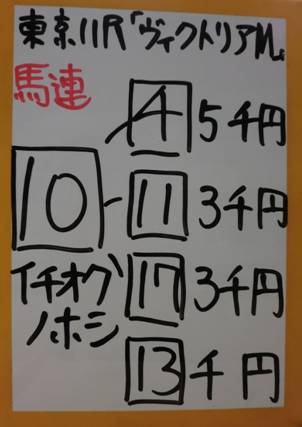 東京11R「ヴィクトリアM」
馬連
4 5千円
10-11 3千円
17 3千円
13 千円
イチオグ
ノホシ